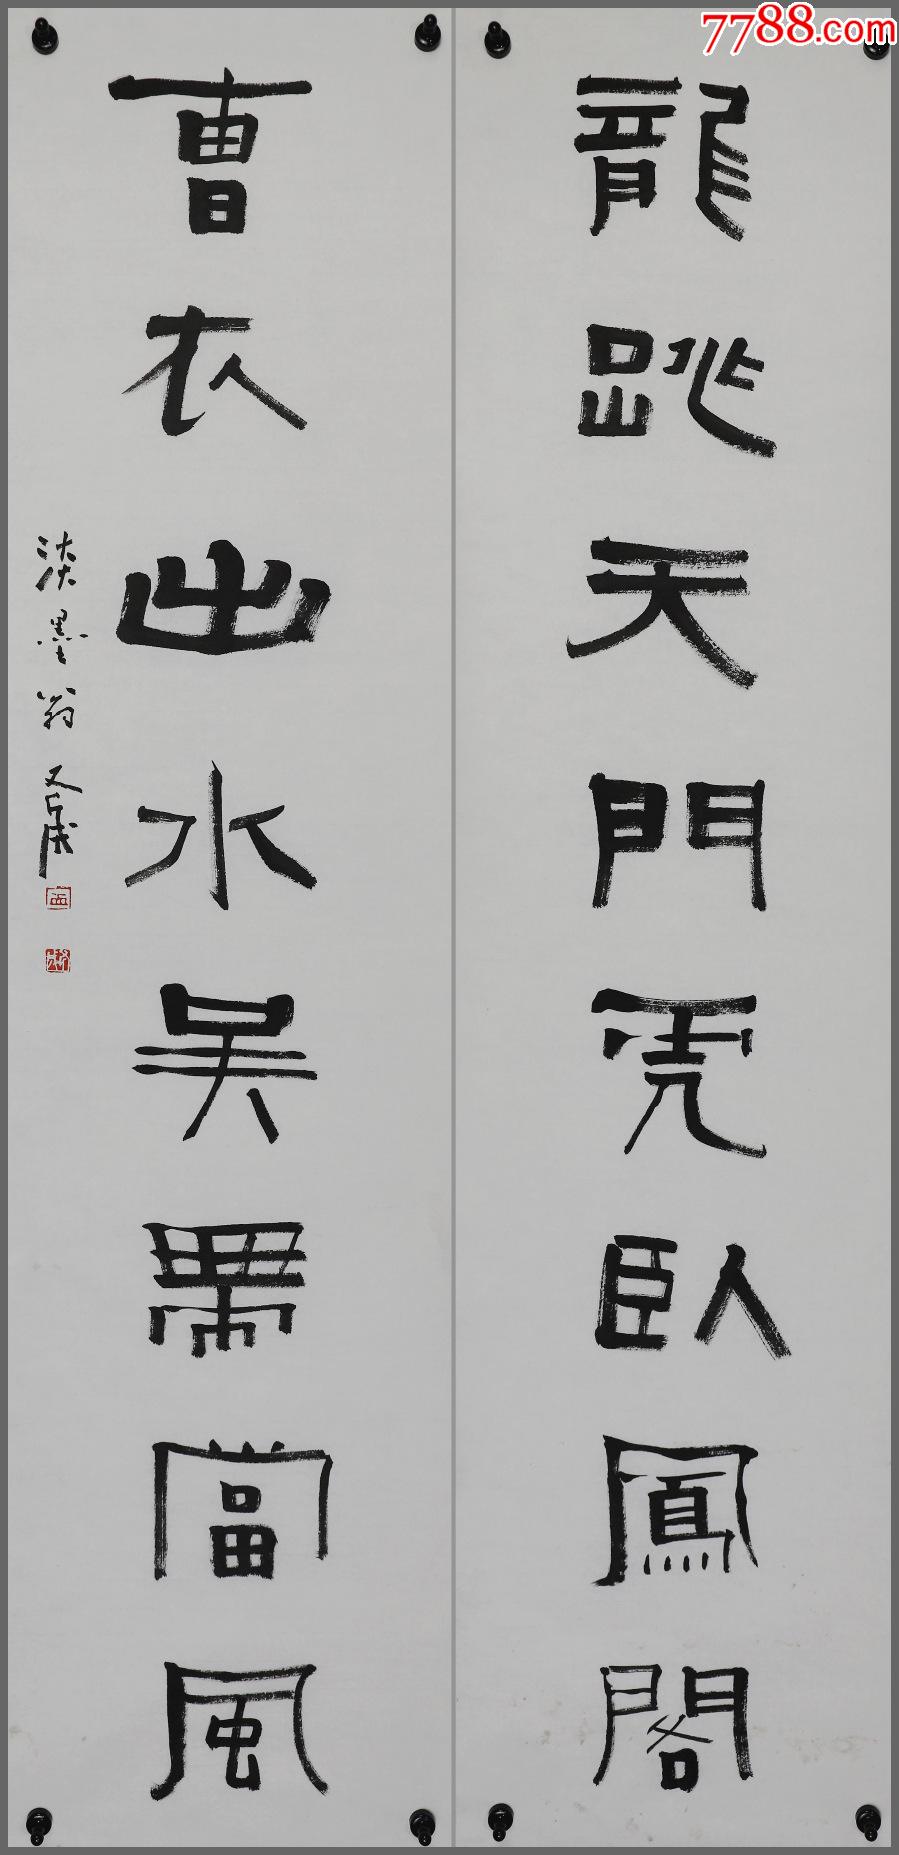 7788.com
龍跳天門虎臥鳳閣
曹衣出水吳帶當風
淡墨翁